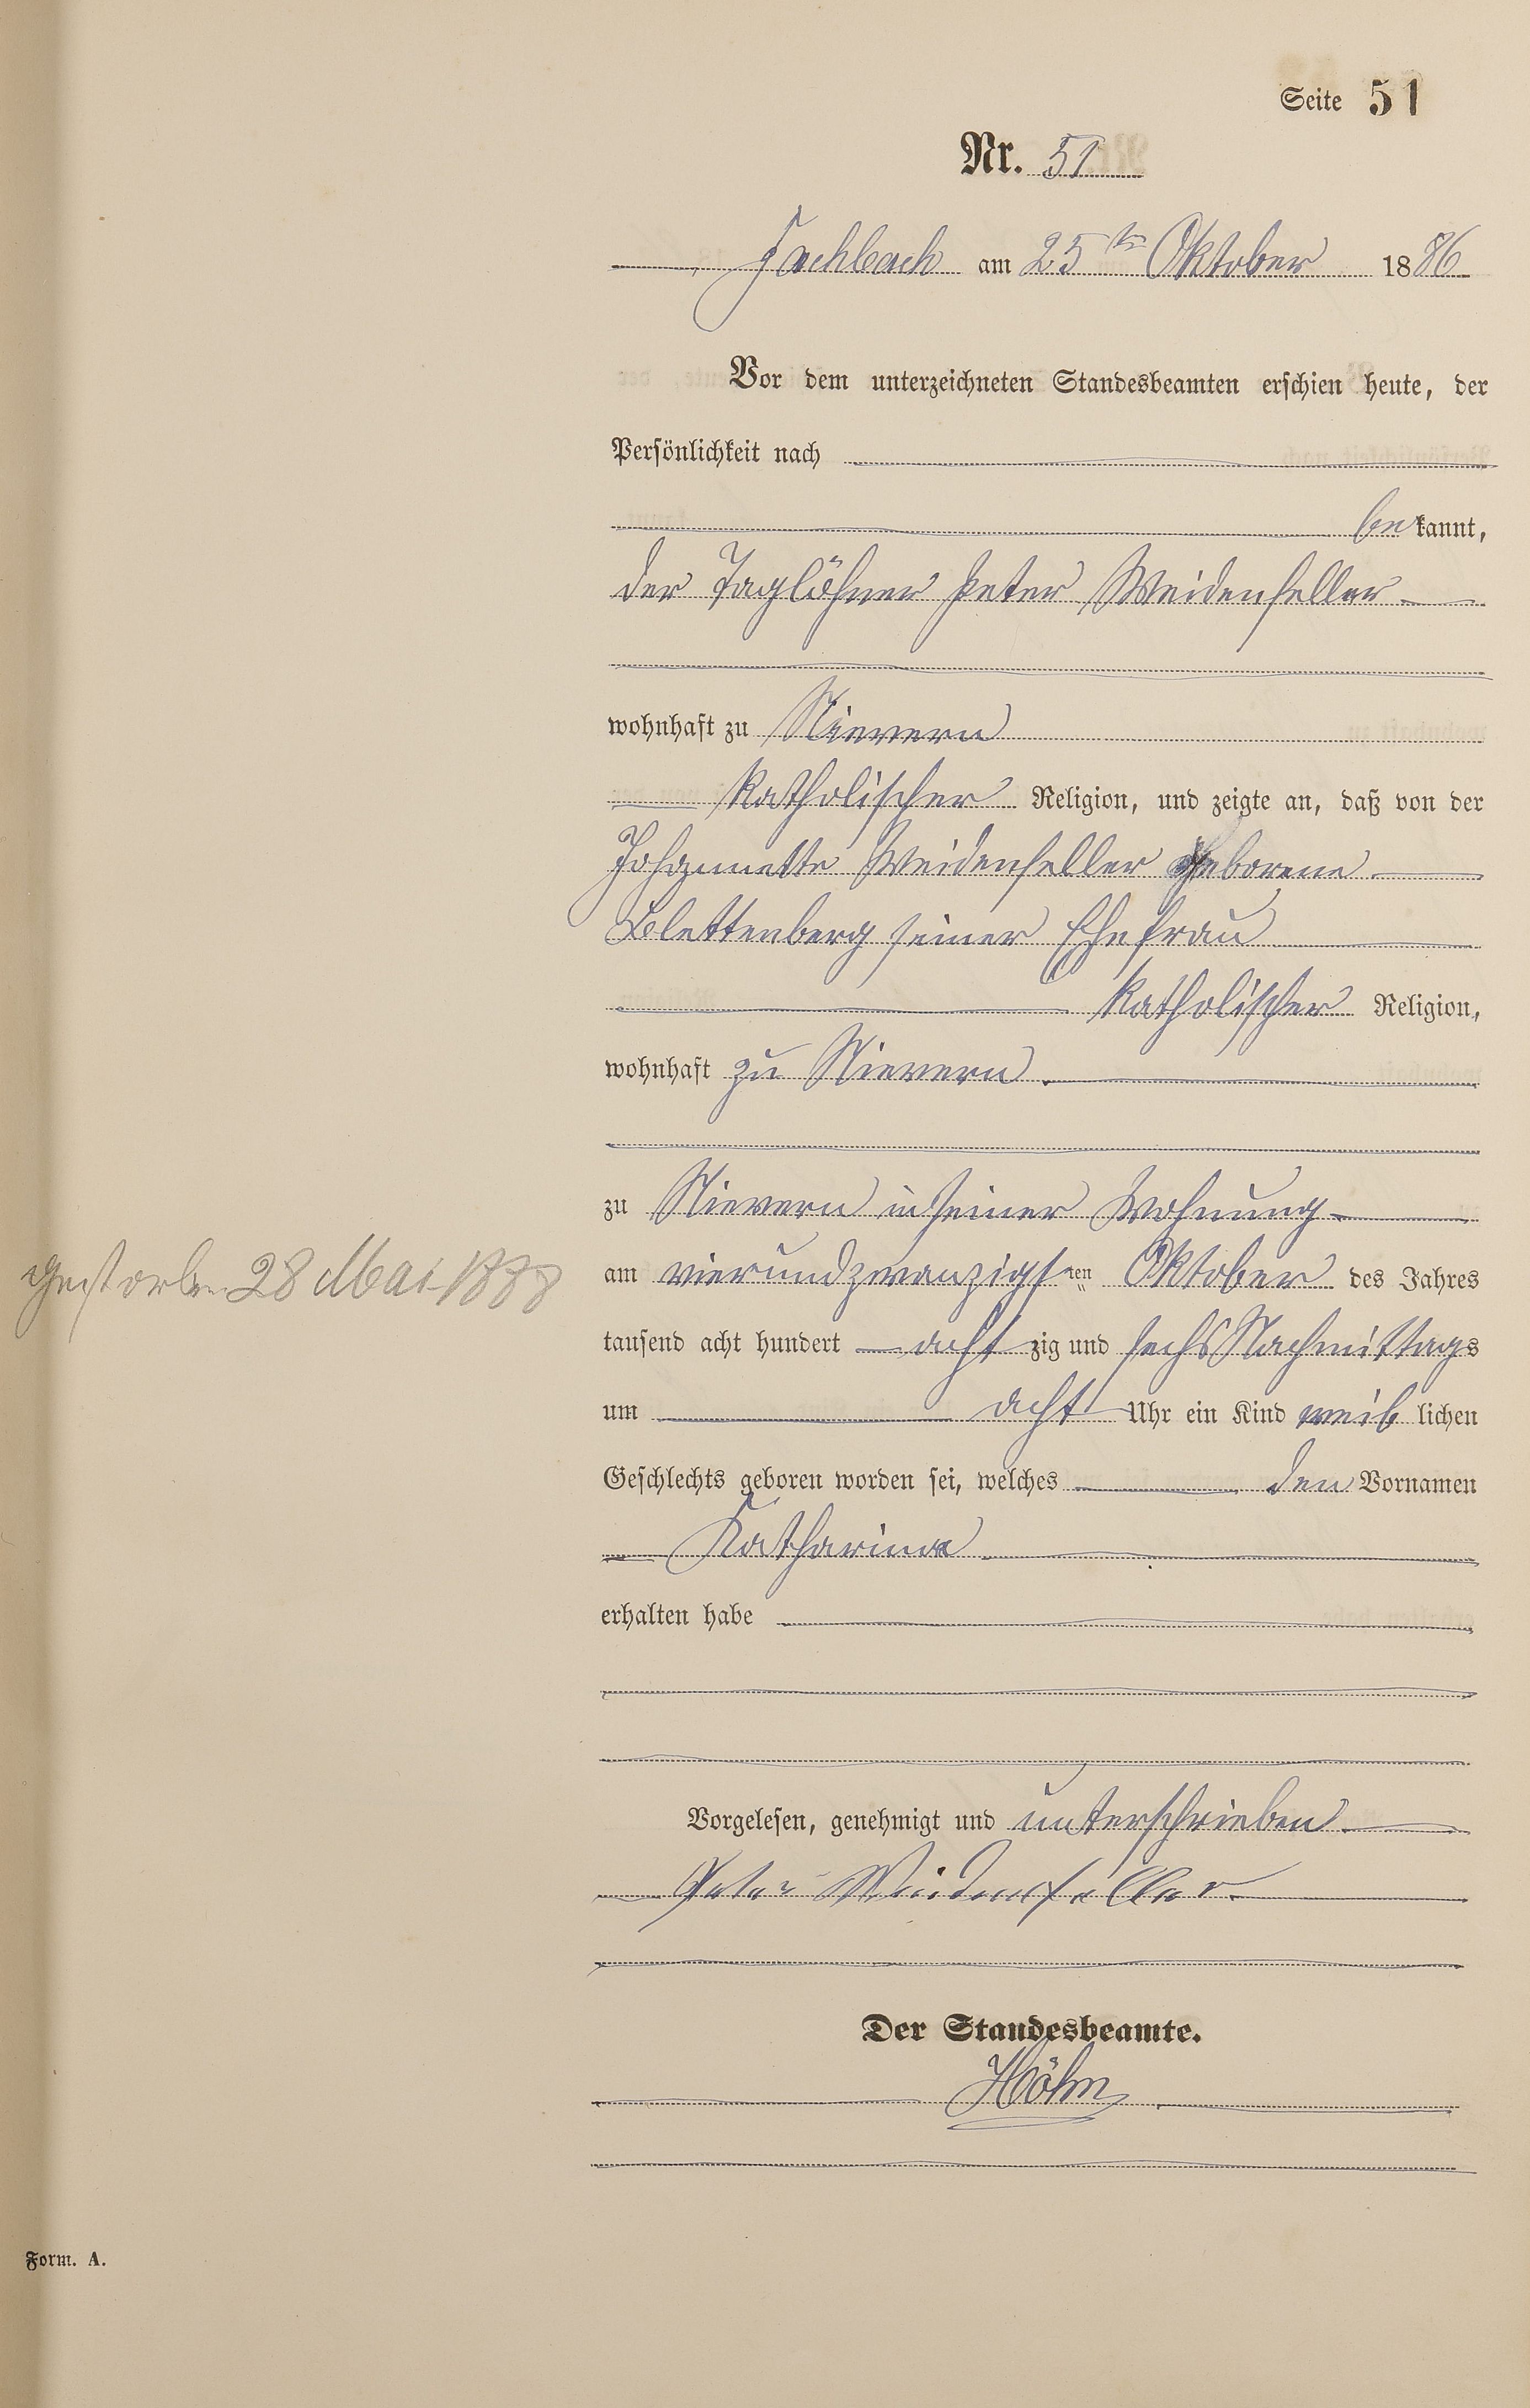 Seite 51
Nr. 51
Fachbach am 25ten Oktober 1886
Vor dem unterzeichneten Standesbeamten erschien heute, der
Persönlichkeit nach
be kannt,
der Taglöhner Peter Weidenfeller
wohnhaft zu Nievern
katholischer Religion, und zeigte an, daß von der
Johannette Weidenfeller geborene
Blettenberg seiner Ehefrau
katholischer Religion,
wohnhaft zu Nievern
zu Nievern in seiner Wohnung
gestorben 28 Mai 1888
am vierundzwanzigsten Oktober des Jahres
tausend acht hundert acht zig und sechs Nachmittags
um acht Uhr ein Kind weib lichen
Geschlechts geboren worden sei, welches den Vornamen
Katharina
erhalten habe
Vorgelesen, genehmigt und unterschrieben
Peter Weidenfeller.
Der Standesbeamte.
Höhn
Form. A.